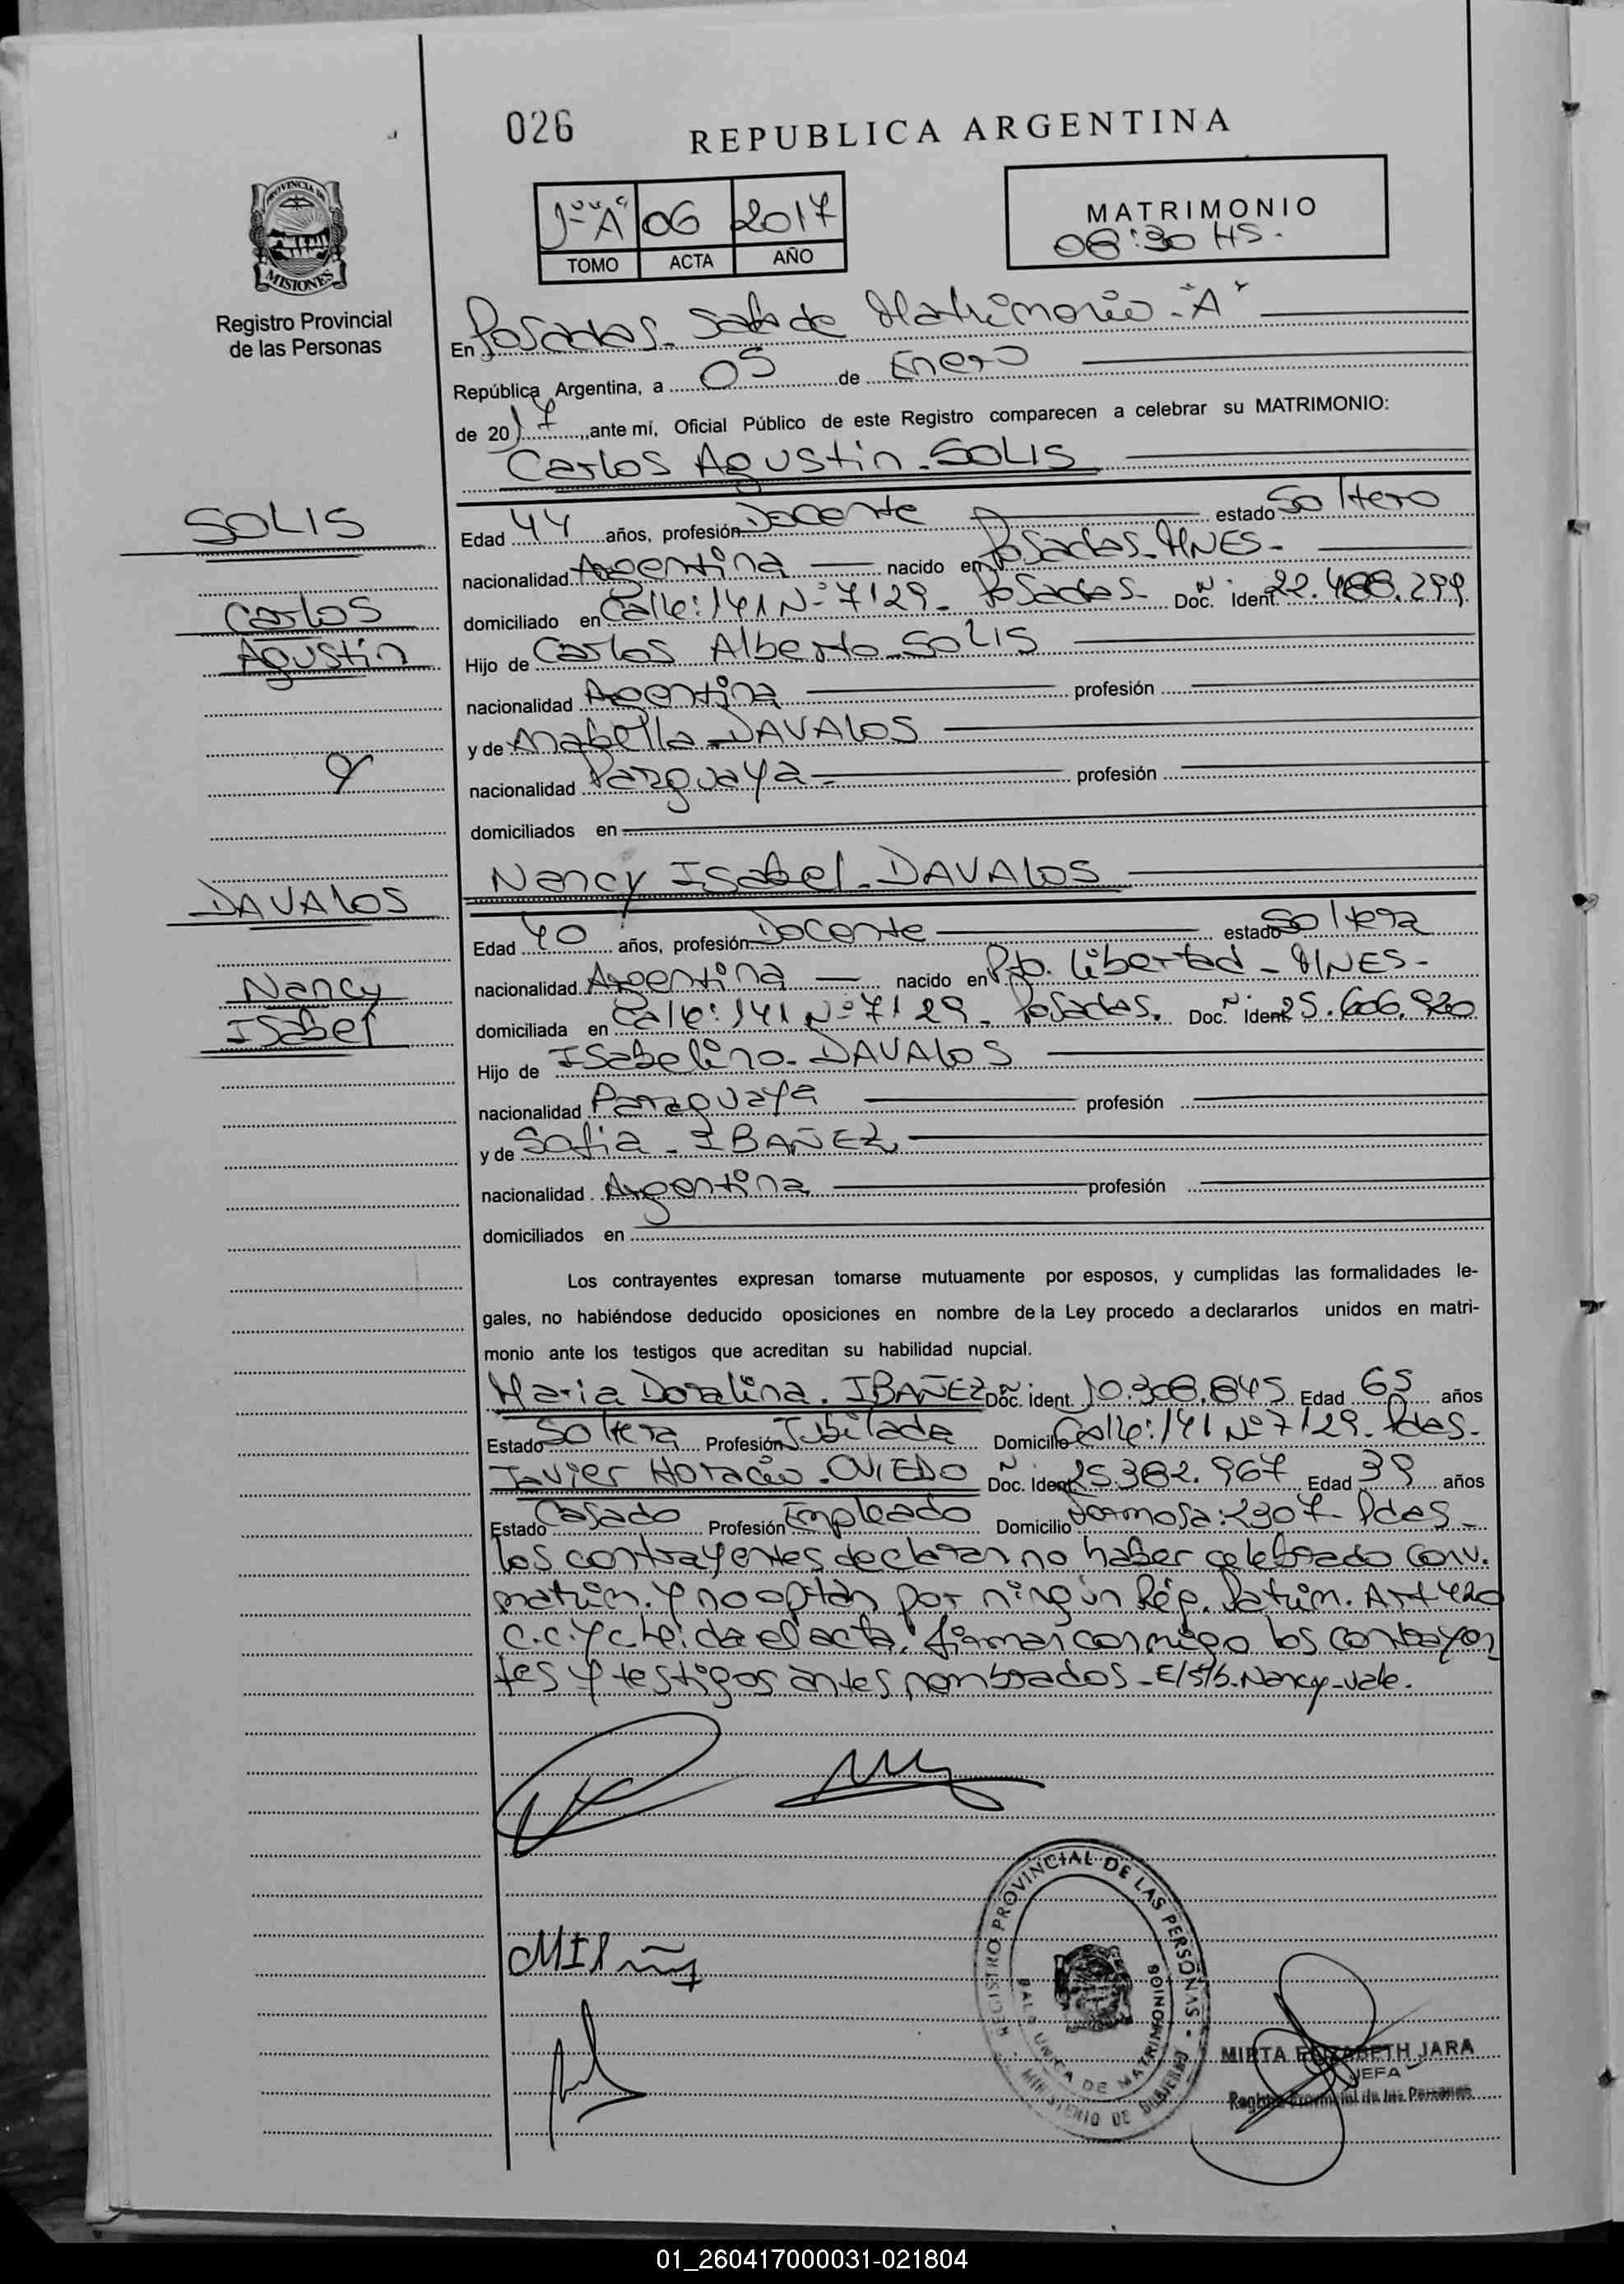 026
REPUBLICA ARGENTINA
PROVINCIA DE
MISIONES
Registro Provincial
de las Personas
1º "A" 06 2017
TOMO ACTA AÑO
MATRIMONIO
08:30 HS.
En Posadas - Sala de Matrimonio - "A"
República Argentina, a 05 de Enero
de 2017, ante mí, Oficial Público de este Registro comparecen a celebrar su MATRIMONIO:
Carlos Agustin - SOLIS
SOLIS
Carlos
Agustín
y
DAVALOS
Nancy
Isabel
Edad 44 años, profesión Docente estado Soltero
nacionalidad Argentina nacido en Posadas - MNES -
domiciliado en Calle: 141 Nº 7129 - Posadas - Doc. Ident. 22.488.299
Hijo de Carlos Alberto - SOLIS
nacionalidad Argentina profesión
y de Anabella - DAVALOS
nacionalidad Paraguaya - profesión
domiciliados en
Nancy Isabel - DAVALOS
Edad 40 años, profesión Docente estado Soltera
nacionalidad Argentina nacido en Pto. Libertad - MNES -
domiciliada en Calle: 141 Nº 7129 - Posadas. Doc. Ident. 25.606.920
Hijo de Isabelino - DAVALOS
nacionalidad Paraguaya profesión
y de Sofia - IBAÑEZ
nacionalidad Argentina profesión
domiciliados en
Los contrayentes expresan tomarse mutuamente por esposos, y cumplidas las formalidades le-
gales, no habiéndose deducido oposiciones en nombre de la Ley procedo a declararlos unidos en matri-
monio ante los testigos que acreditan su habilidad nupcial.
Maria Doralina. IBAÑEZ Doc. ident. 10.308.845 Edad 65 años
Estado Soltera Profesión Jubilada Domicilio Calle: 141 Nº 7129. Pdas.
Javier Horacio. OVIEDO Doc. Ident. 25.382.967 Edad 39 años
Estado Casado Profesión Empleado Domicilio Formosa: 2307 - Pdas -
los contrayentes declaran no haber celebrado Conv.
matrim. y no optan por ningún Rég. Patrim. Art 420
C.C.y C. Leida el acta, firman conmigo los contrayen
tes y testigos antes nombrados - E/S/b. Nancy - Vale.
REGISTRO PROVINCIAL DE LAS PERSONAS -
SALA UNICA DE MATRIMONIOS
MINISTERIO DE GOBIERNO
MIRTA ELIZABETH JARA
JEFA
Registro Provincial de las Personas
01_260417000031-021804